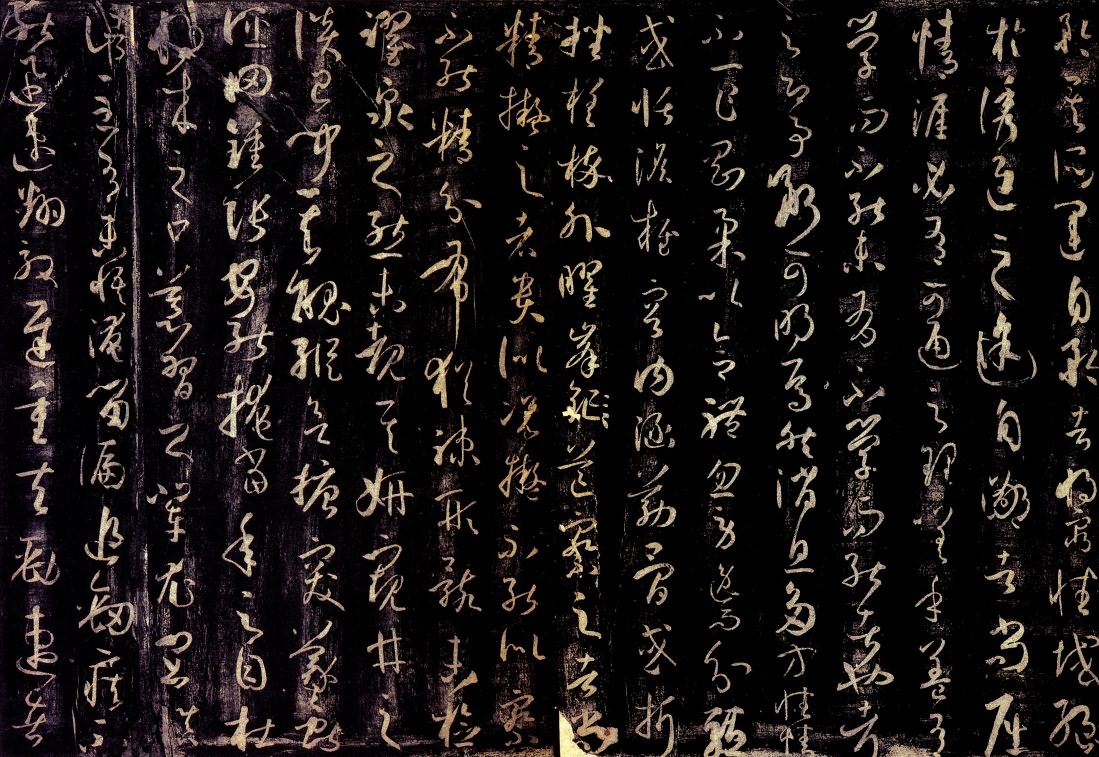 矜其所運自矜者將窮性域絕
於誘進之途自鄙者尚屈
情涯必有可通之理嗟乎蓋有
學而不能未有不學而能者也考
之即事斷可明焉然消息多方性情
不一乍剛柔以合體忽勞逸而分驅
或恬澹雍容內涵筋骨或折
挫槎枿外曜鋒芒察之者尚
精擬之者貴似況擬不能似察
不能精分布猶疏形骸未檢
躍泉之態未睹其妍窺井之
談已聞其醜縱欲唐突羲獻
誣罔鍾張安能掩當年之目杜
將來之口慕習之輩尤宜慎
諸至有未悟淹留偏追勁疾不
能迅速翻效遲重夫勁速者